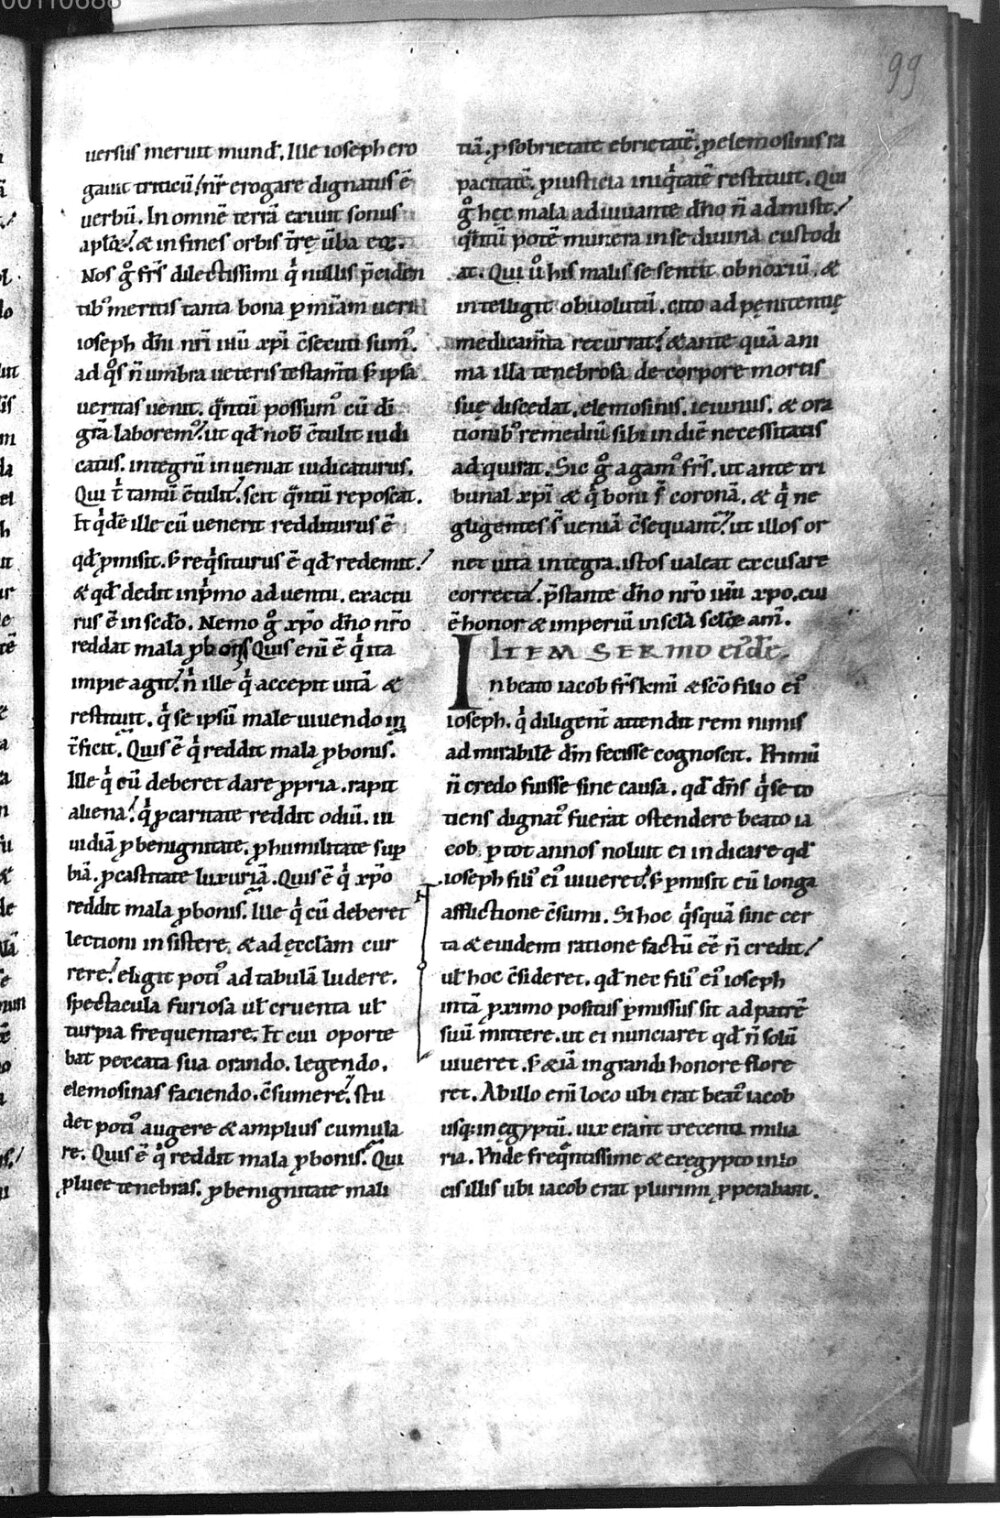 00110688
99
uersus meruit mund᷒. Ille ioseph ero
gauit triticū / nr̄ erogare dignatus ē
uerbū. In omnē terrā exiuit sonus
aploꝝ / & in fines orbis tr̄ę ūba eoꝝ.
Nos g̊ frs̄ dilectissimi qͥ nullis p̄ceden
tibꝰ meritis tanta bona ꝑ mīam ueri
ioseph dn̄i nr̄i ihū xp̄i c̄secuti sumꝰ.
ad qͦs n̄ umbra ueteris testam̄ti sꝫ ipsa
ueritas uenit. qͣntū possumꝰ cū di
gr̄a laboremꝰ / ut qd̄ nob̄ c̄tulit iudi
catus. integrū inueniat iudicaturus.
Qui t̄ tantū c̄tulit / scit qͣntū reposcat.
Et qͥdē ille cū uenerit redditurus ē
qd̄ ꝓmisit. sꝫ reqͥsiturus ē qd̄ redemit /
& qd̄ dedit in pͥmo aduentu. exactu
rus ē in sc̄do. Nemo g̊ xp̄o dn̄o nr̄o
reddat mala ꝓ bonis Quis enī ē qͥ ita
impie agit / n̄ ille qͥ accepit uitā &
restituit. qͥ se ipsū male uiuendo in
t̄ficit. Quis ē qͥ reddit mala ꝓ bonis.
Ille qͥ cū deberet dare ꝓpria. rapit
aliena / qͥ ꝓ caritate reddit odiū. in
uidiā ꝓ benignitate. ꝓ humilitate suꝑ
biā. ꝓ castitate luxuriā. Quis ē qͥ xp̄o
reddit mala ꝓ bonis. Ille qͥ cū deberet
lectioni insistere, & ad ęcclām cur
rere / eligit potiꝰ ad tabulā ludere.
spectacula furiosa ul̄ cruenta ul̄
turpia frequentare. Et cui oporte
bat peccata sua orando. legendo.
elemosinas faciendo. c̄sumere / stu
det potiꝰ augere & amplius cumula
re. Quis ē qͥ reddit mala ꝓ bonis. Qui
ꝓ luce tenebras. ꝓ benignitate mali
tiā. ꝓ sobrietate ebrietatē. ꝓ elemosinis ra
pacitatē. ꝓ iusticia iniqͥtatē restituit. Qui
g̊ hęc mala adiuuante dn̄o n̄ admisit /
qͣntū potē munera in se diuina custodi
at. Qui ū̊ his malis se sentit obnoxiū. &
intelligit obuolutū. cito ad pęnitentię
medicam̄ta recurrat / & ante quā ani
ma illa tenebrosa de corpore mortis
suę discedat. elemosinis. ieiuniis. & ora
tionibꝰ remediū sibi in diē necessitatis
adquirat. Sic g̊ agamꝰ frs̄. ut ante tri
bunal xp̄i & qͥ boni s̄ coronā. & qͥ ne
gligentes s̄ ueniā c̄sequant᷒ / ut illos or
net uita integra. istos ualeat excusare
correcta / p̄stante dn̄o nr̄o ihū xp̄o. cui
ē honor & imperiū in sc̄la sc̄loꝝ am̄.
ITEM SERMO eiꝰdē.
In beato iacob frs̄ km̄i & sc̄o filio eiꝰ
ioseph. qͥ diligent᷒ attendit rem nimis
admirabilē dn̄m fecisse cognoscit. Primū
n̄ credo fuisse sine causa. qd̄ dn̄s qͥ se to
tiens dignatꝰ fuerat ostendere beato ia
cob. ꝑ tot annos noluit ei indicare qd̄
ioseph filiꝰ eiꝰ uiueret / sꝫ ꝑmisit eū longa
afflictione c̄sumi. Si hoc qͥsquā sine cer
ta & euidenti ratione factū eē n̄ credit /
ul̄ hoc c̄sideret. qd̄ nec filiꝰ eiꝰ ioseph
in tā ꝓximo positus ꝑmissus sit ad patrē
suū mittere. ut ei nunciaret qd̄ n̄ solū
uiueret. sꝫ & iā in grandi honore flore
ret. Ab illo enī loco ubi erat beatꝰ iacob
usqꝫ in ęgyptū. uix erant trecenta milia
ria. Vnde freqͣntissime & ex ęgypto in lo
cis illis ubi iacob erat plurimi ꝓperabant.